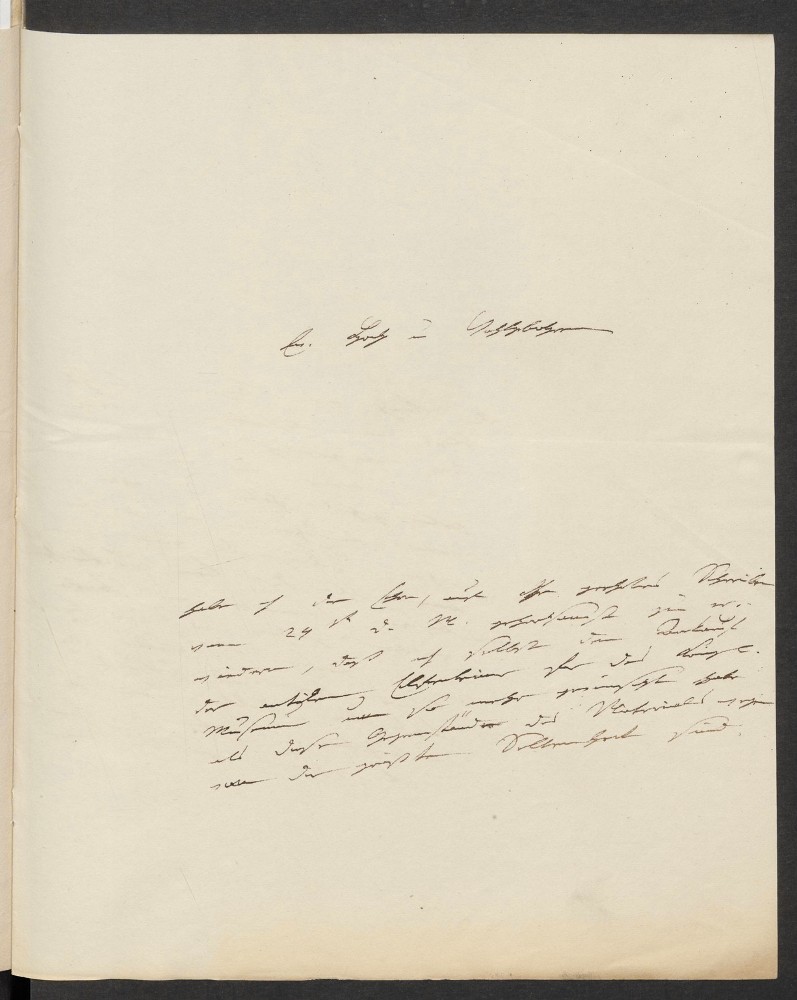 Ew. Hoch u Wohlgeboren
habe ich die Ehre, auf Ihr geehrtes Schreiben
vom 24 d. M. gehorsamst zu er-
wiedern, daß ich selbst den Ankauf
der antiken für das Königl.
Museum um so mehr gewünscht habe
als diese Gegenstände des Materials wegen
von der größten Seltenheit sind.